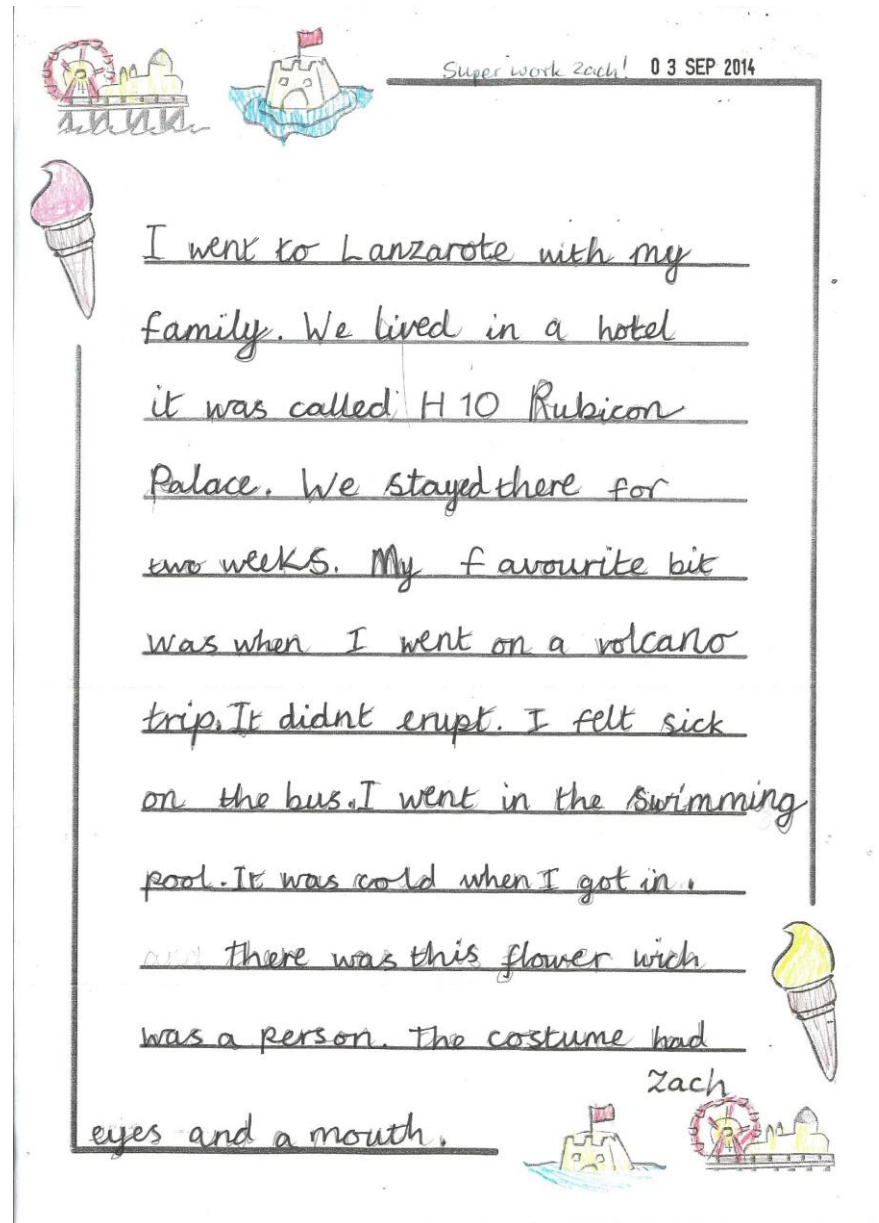 Super work Zach! 03 SEP 2014
I went to Lanzarote with my
family. We lived in a hotel
it was called H10 Rubicon
Palace. We stayed there for
two weeks. My favourite bit
was when I went on a volcano
trip. It didnt erupt. I felt sick
on the bus. I went in the swimming
pool. It was cold when I got in.
and there was this flower wich
was a person. The costume had
Zach
eyes and a mouth.